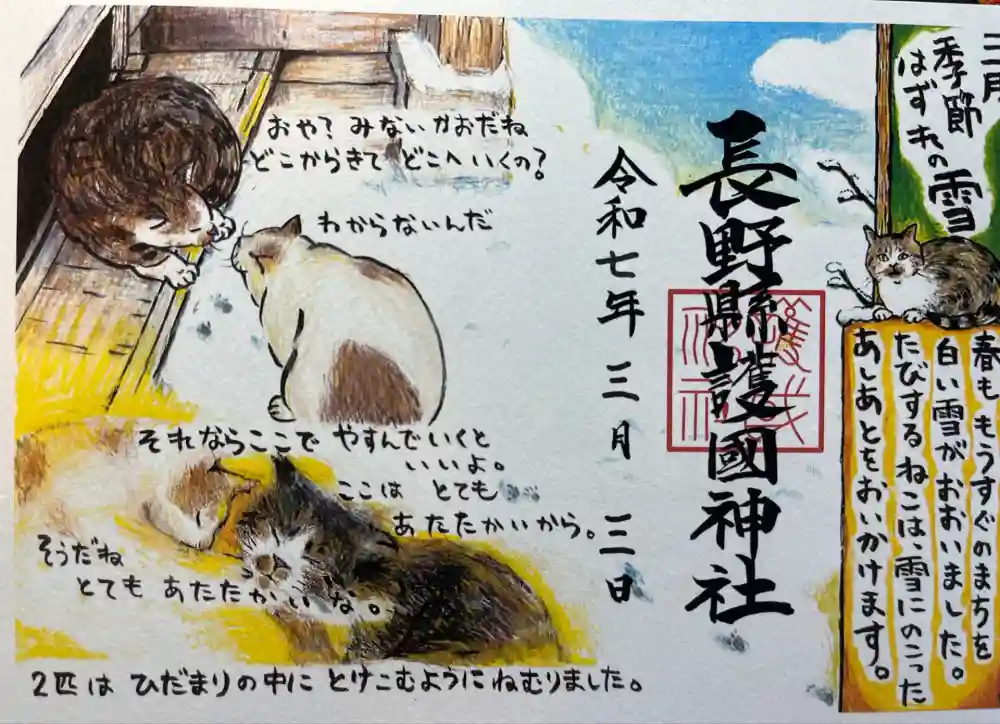 三月
季節
はずれの雪
春ももうすぐのまちを
白い雪がおおいました。
たびするねこは、雪にのこった
あしあとをおいかけます。
長野縣護國神社
令和七年三月三日
おや?みないかおだね
どこからきて どこへいくの?
わからないんだ
それならここで やすんでいくと
いいよ。
ここは とても
あたたかいから。
そうだね
とても あたたかいな。
2匹は ひだまりの中に とけこむように ねむりました。